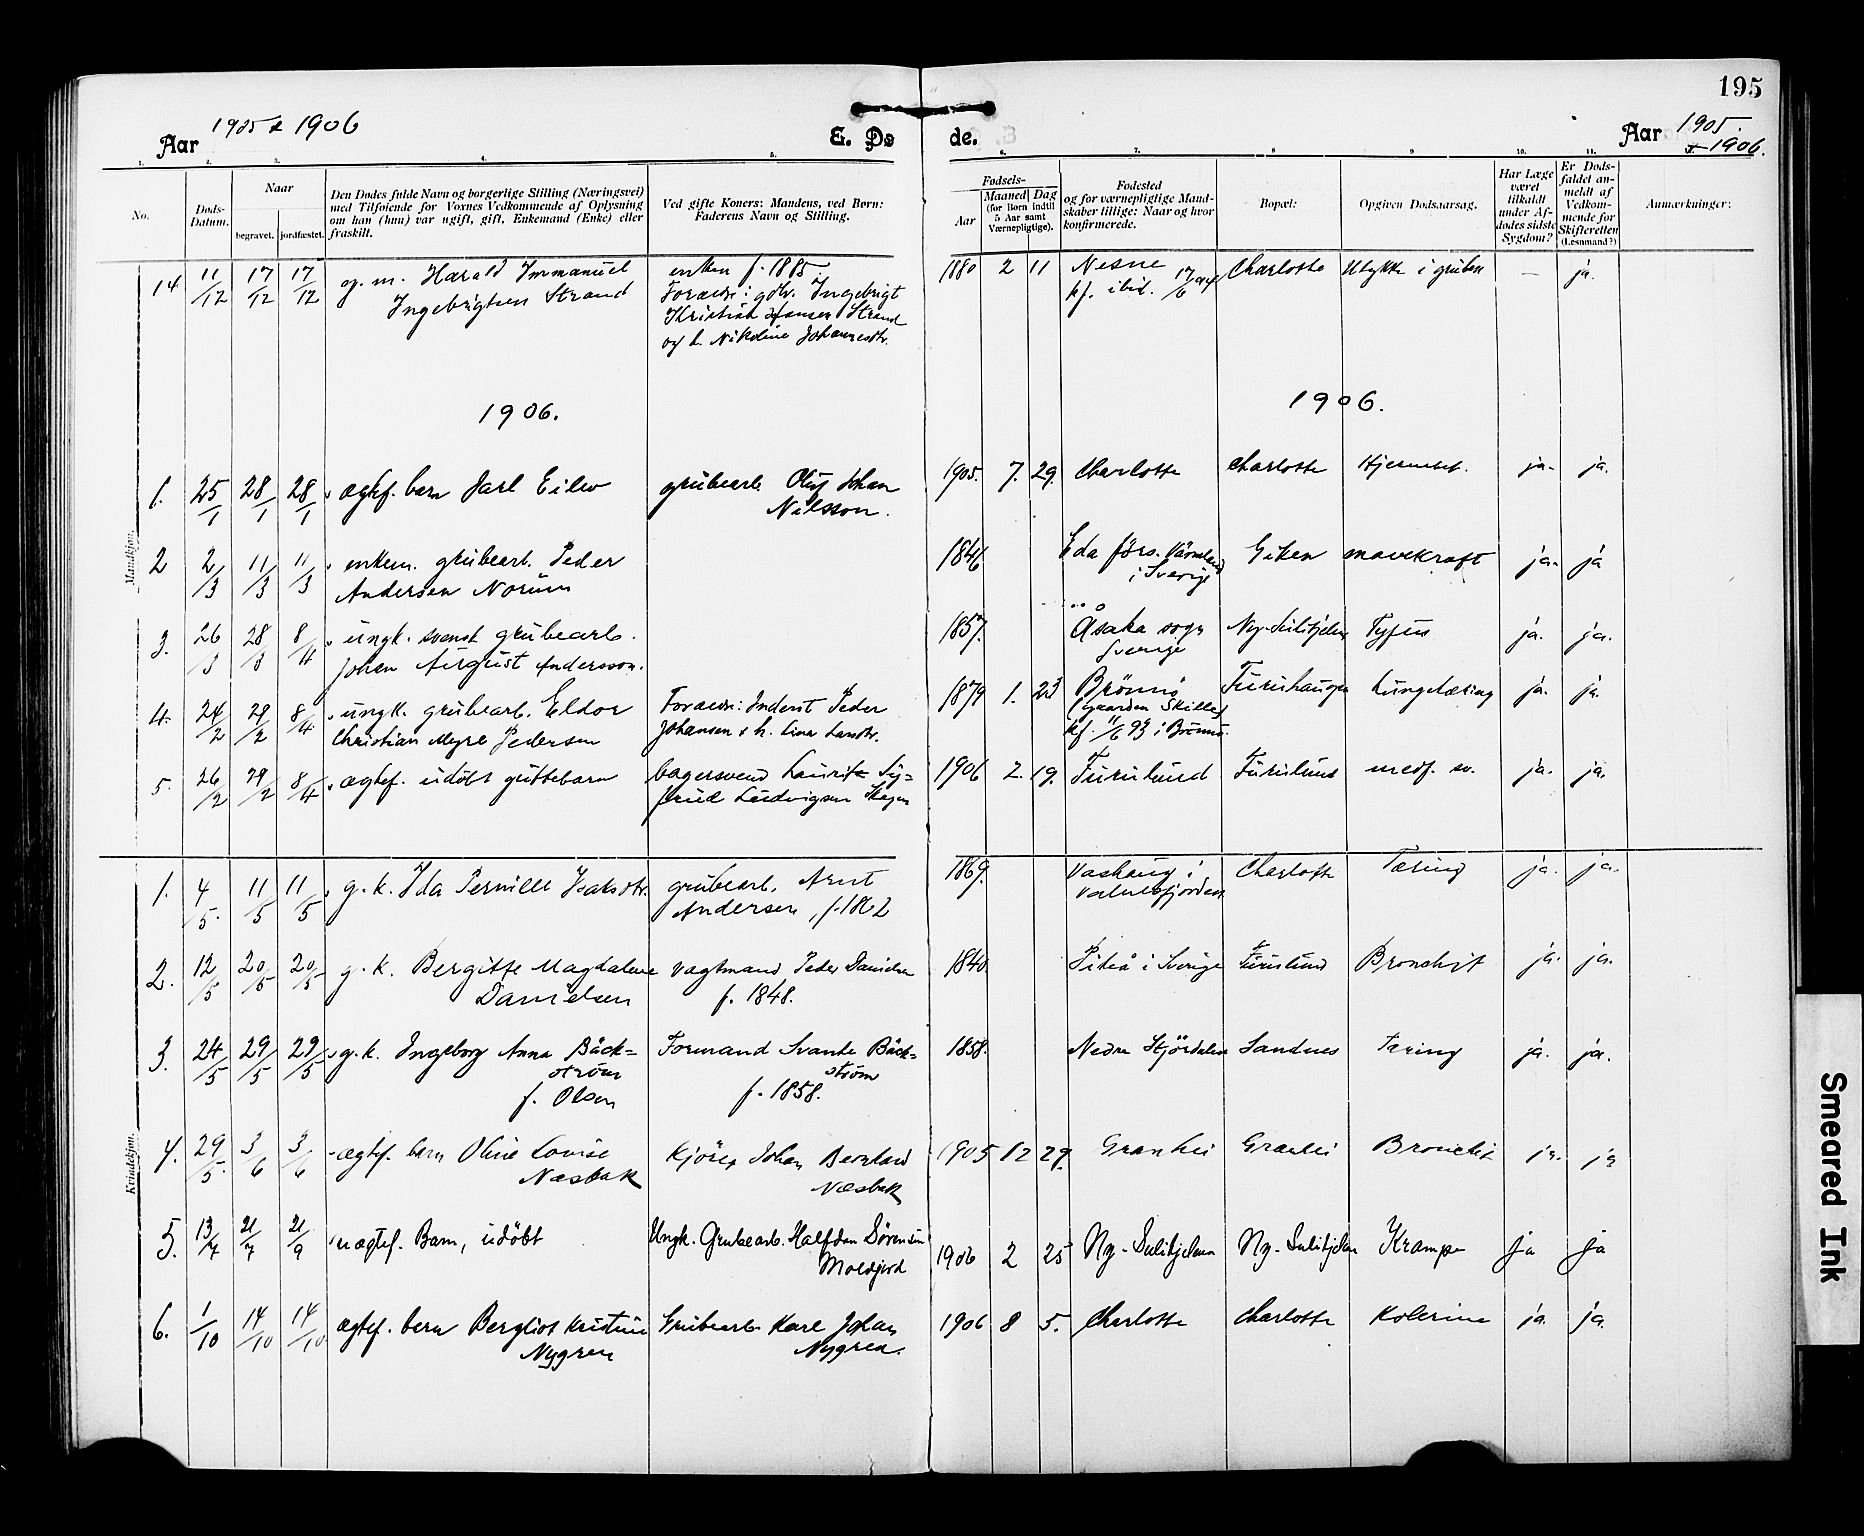 195
Aar 1905 & 1906
E. Dø
de.
Aar 1905
& 1906.
1. 2. 3. 4. 5. 6. 7. 8 9 10. 11.
No.
Døds-
Datum.
Naar
begravet. jordfæstet.
Den Dødes fulde Navn og borgerlige Stilling (Næringsvei)
med Tilføiende for Voxnes Vedkommende af Oplysning
om han (hun) var ugift, gift, Enkemand (Enke) eller
fraskilt.
Ved gifte Koners: Mandens, ved Børn:
Faderens Navn og Stilling.
Fødsels-
Aar
Maaned Dag
(for Børn indtil
5 Aar samt
Værnepligtige).
Fødested
og for værnepligtige Mand-
skaber tillige: Naar og hvor
konfirmerede.
Bopæl:
Opgiven Dødsaarsag.
Har Læge
været
tilkaldt
under Af-
dødes sidste
Sygdom?
Er Døds-
faldet an-
meldt af
Vedkom-
mende for
Skifteretten
(Lensmand?)
Anmærkninger:
Mandkjøn.
14 11/12 17/12 17/12 g. m. Harald Immanuel
Ingebrigtsen Strand
enken f. 1885
Forældr: gdbr. Ingebrigt
Kristian Hansen Strand
og h. Nikoline Johannesdtr.
1880 2 11 Nesne
kf. ibid.
Charlotta Ulykke i gruben — ja.
1906.
1906.
1. 25/1 28/1 28/1 ægtef. barn Jarl Eilev
grubearb. Oluf Johan
Nilsson.
1905. 7. 29. Charlotte Charlotte ja. ja.
2 2/3 11/3 11/3 enkem. grubearb. Peder
Andersen Norum
1846 Eda förs. Värmland
i Sverige
Giken mavekræft ja. ja
3. 26/3 28/3 8/4 ungk. svensk grubearb.
Johan August Andersson.
1857. Åsaka sogn
Sverige
Ny-Sulitjelma Tyfus ja. ja.
4. 24/2 29/2 8/4 ungk. grubearb. Eldor
Christian Meyre Pedersen
Forældr: Inderst Peder
Johansen & h. Lina Larsdtr.
1879 1. 23 Brönnö
gaarden Skille
kf. 11/6 93 i Brönnö.
Furuhaugen Lungetæring ja. ja.
5. 26/2 29/2 8/4 ægtef. udöbt guttebarn
bagersvend Lauritz Sig-
frid Ludvigsen
1906 2. 19. Furulund Furulund medf. sv. ja. ja.
Kvindekjøn.
1. 4/5. 11/5 11/5 g. k. Ida Pernille Isaksdtr.
grubearb. Arnt
Andersen, f. 1862
1869.
Charlotte Tæring ja. ja.
2. 12/5 20/5 20/5 g. k. Bergitte Magdalene
Danielsen
vagtmand Peder Danielsen
f. 1848.
1840. Piteå i Sverige Furulund Bronchit ja. ja.
3. 24/5 29/5 29/5 g. k. Ingeborg Anna Bäck-
ström
f. Olsen
Formand Svante Bäck-
ström
f. 1858.
1858. Nedre Stjördalen Sandnes Tæring ja. ja.
4. 29/5. 3/6 3/6 ægtef. barn Oline Lovise
Næsbak
Kjörer Johan Bernhard
Næsbak
1905 12 29. Granhei Granhei Bronchit ja. ja
5. 13/7 21/7 21/9 uægtef. Barn, udöbt
Ungk. Grubearb. Halfdan Sörensen
Moldjord
1906 2 25 Ny-Sulitjelma Ny-Sulitjelma Krampe ja ja
6. 1/10 14/10 14/10 ægtef. barn Bergliot Kristine
Nygren
Grubearb. Karl Johan
Nygren.
1906 8 5. Charlotte Charlotte Kolerine ja. ja.
Smeared Ink